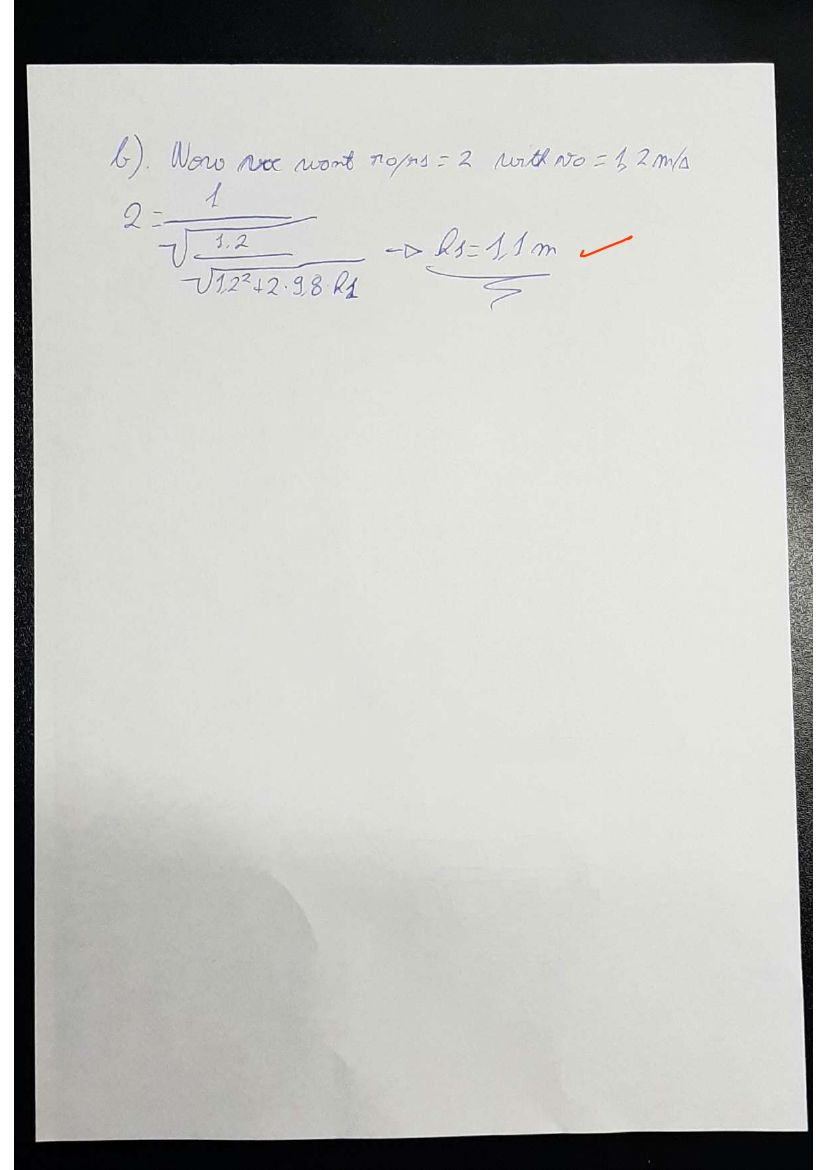 b). Now we want r0/r1 = 2 with v0 = 1,2 m/s
2 = 1 / √(1,2 / √(1,2² + 2 · 9,8 · h1)) → h1 = 1,1 m ✓